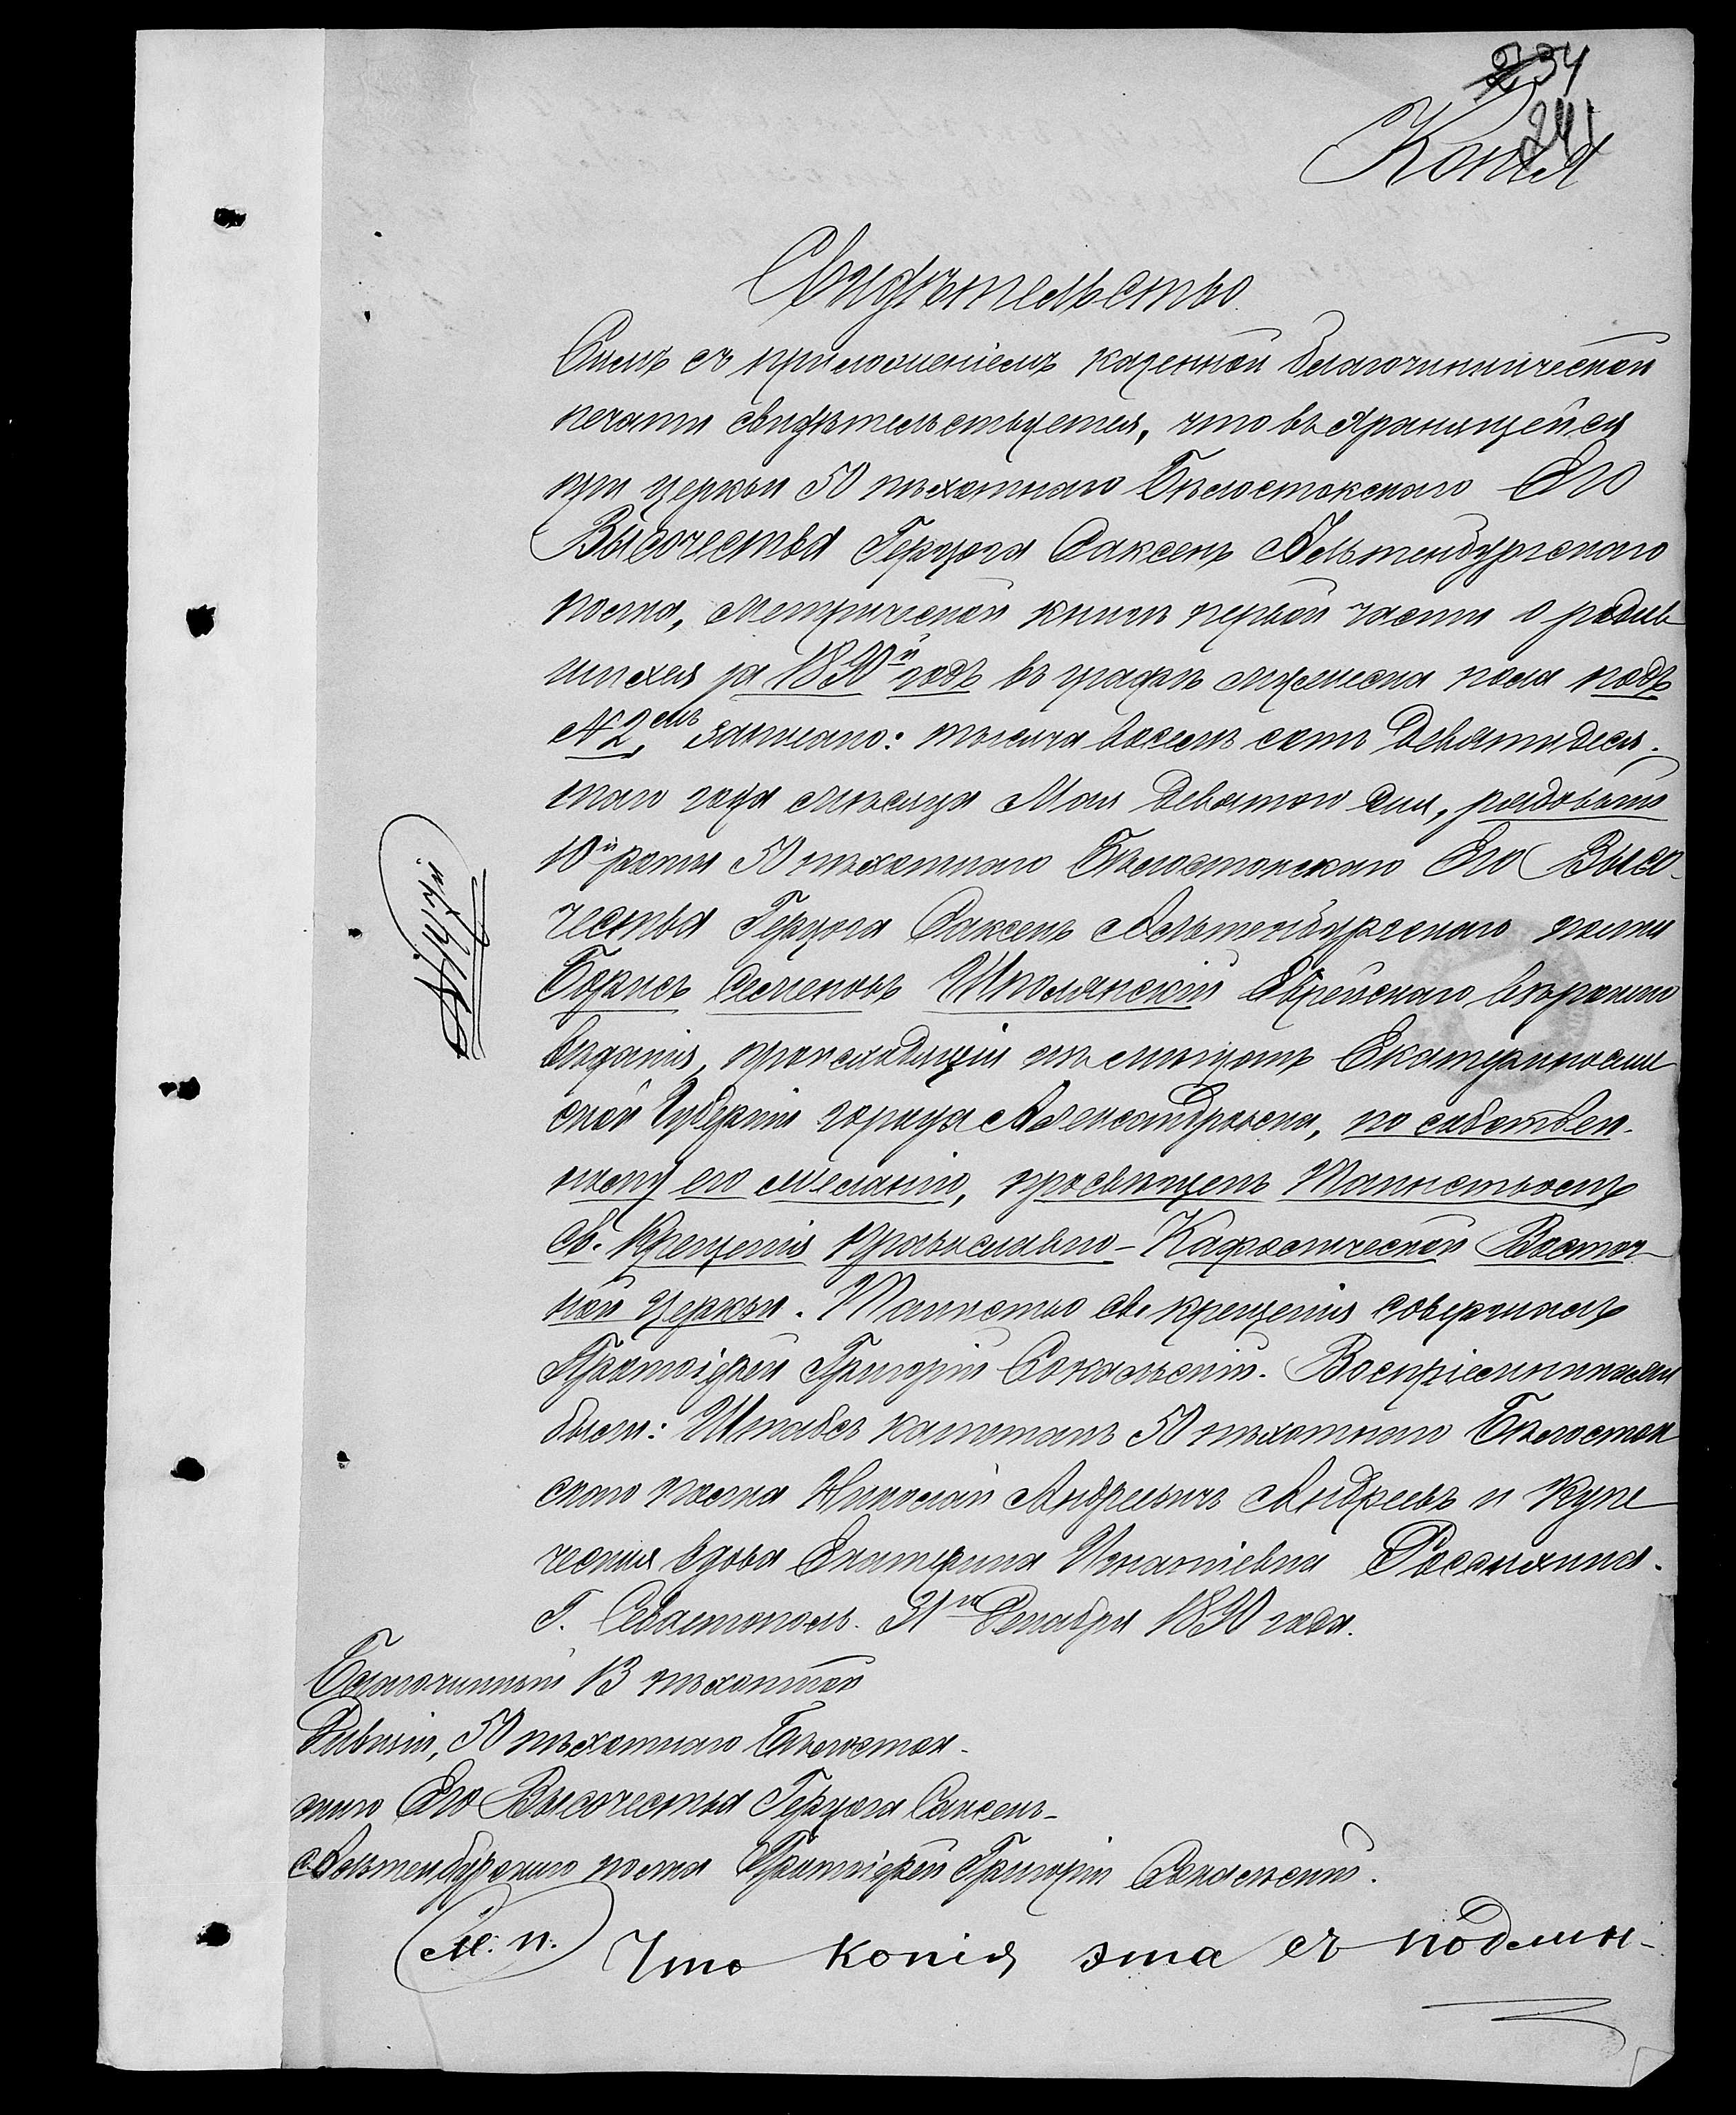 234
241
Копія
Свидѣтельство.
Симъ съ приложеніемъ казенной благочиннической
печати свидѣтельствуется, что въ хранящейся
при церкви 50 пѣхотнаго Бѣлостокскаго Его
Высочества Герцога Саксенъ Альтенбургскаго
полка, метрической книгѣ первой части о родив-
шихся за 1890й годъ въ графѣ мужеска пола подъ
№ 2мъ записано: тысяча восемь сотъ девяностаго
таго года мѣсяца Мая девятаго дня, рядовый
10й роты 50 пѣхотнаго Бѣлостокскаго Его Высо-
чества Герцога Саксенъ Альтенбургскаго полка
Борисъ Семеновъ Шполянскій Еврейскаго вѣроиспо
вѣданія, происходящій изъ мѣщанъ Екатеринослав
ской Губерніи города Александровска, по собствен-
ному его желанію, просвѣщенъ Таинствомъ
Св. Крещенія Православно-Кафолической Восточ-
ной церкви. Таинство св. крещенія совершилъ
Протоіерей Григорій Сокальскій. Воспріемниками
были: Штабсъ капитанъ 50 пѣхотнаго Бѣлосток
скаго полка Николай Андреевичъ Андреевъ и купе
ческая вдова Екатерина Игнатіевна
Г. Севастополь. 31го Декабря 1890 года.
Благочинный 13 пѣхотной
Дивизіи, 50 пѣхотнаго Бѣлосток-
скаго Его Высочества Герцога Саксенъ-
Альтенбургскаго полка Протоіерей Григорій Сокальскій.
М. п.
Что копія эта съ подлин-